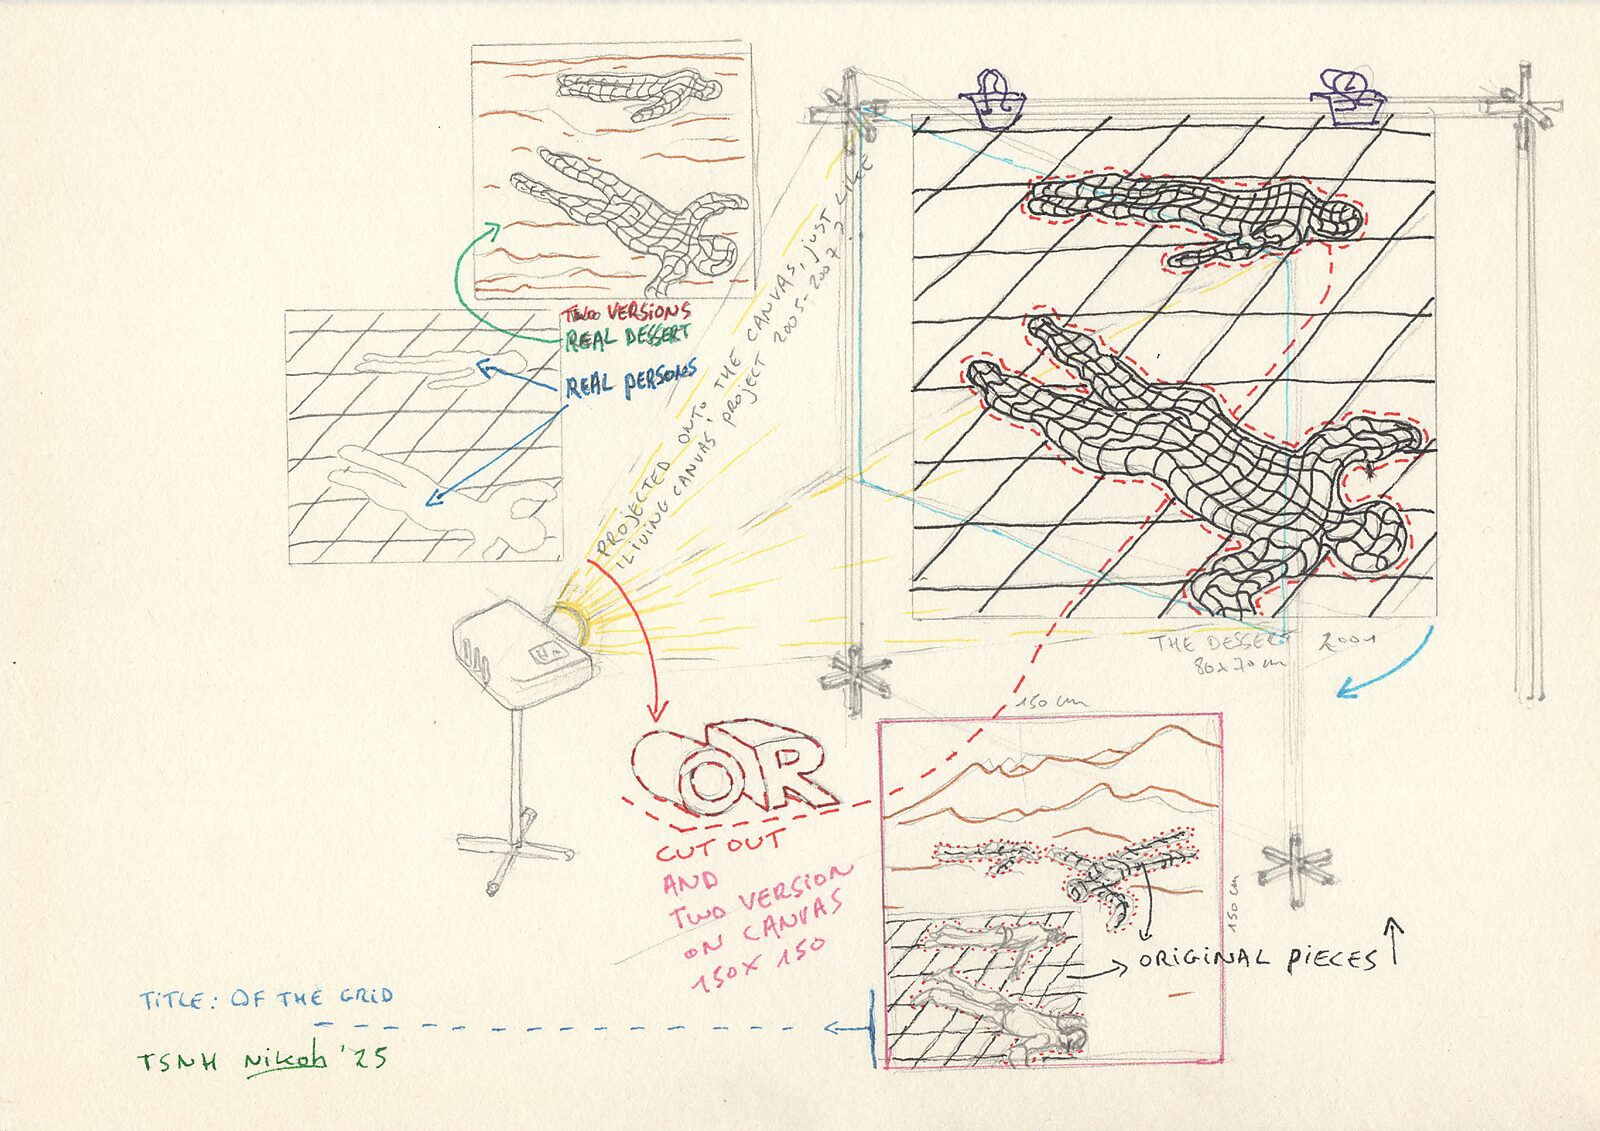 TWO VERSIONS
REAL DESSERT
REAL PERSONS
PROJECTED ONTO THE CANVAS, JUST LIKE
"LIVING CANVAS" PROJECT 2005-2007
THE DESSERT 2001
80x70 cm
150 cm
OR
CUT OUT
AND
TWO VERSION
ON CANVAS
150X 150
150 cm
ORIGINAL PIECES
TITLE: OF THE GRID
TSNH Nikoh '25